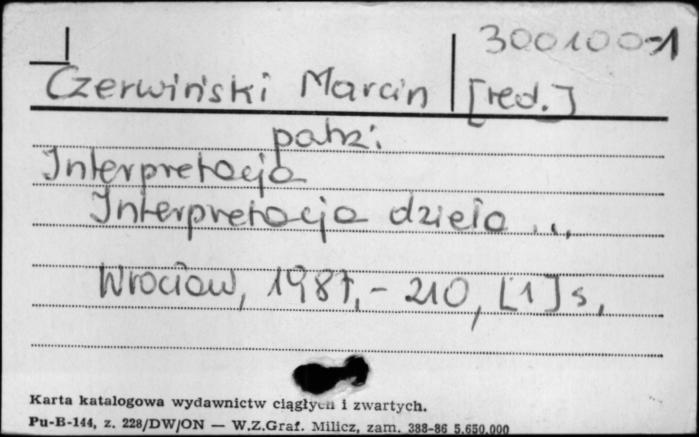 300100-1
Czerwiński Marcin [red.]
patrz:
Interpretacja
Interpretacja dzieła ...
Wrocław, 1987, - 210, [1] s.
Karta katalogowa wydawnictw ciągłych i zwartych.
Pu-B-144, z. 228/DW/ON — W.Z.Graf. Milicz, zam. 388-86 5.650.000